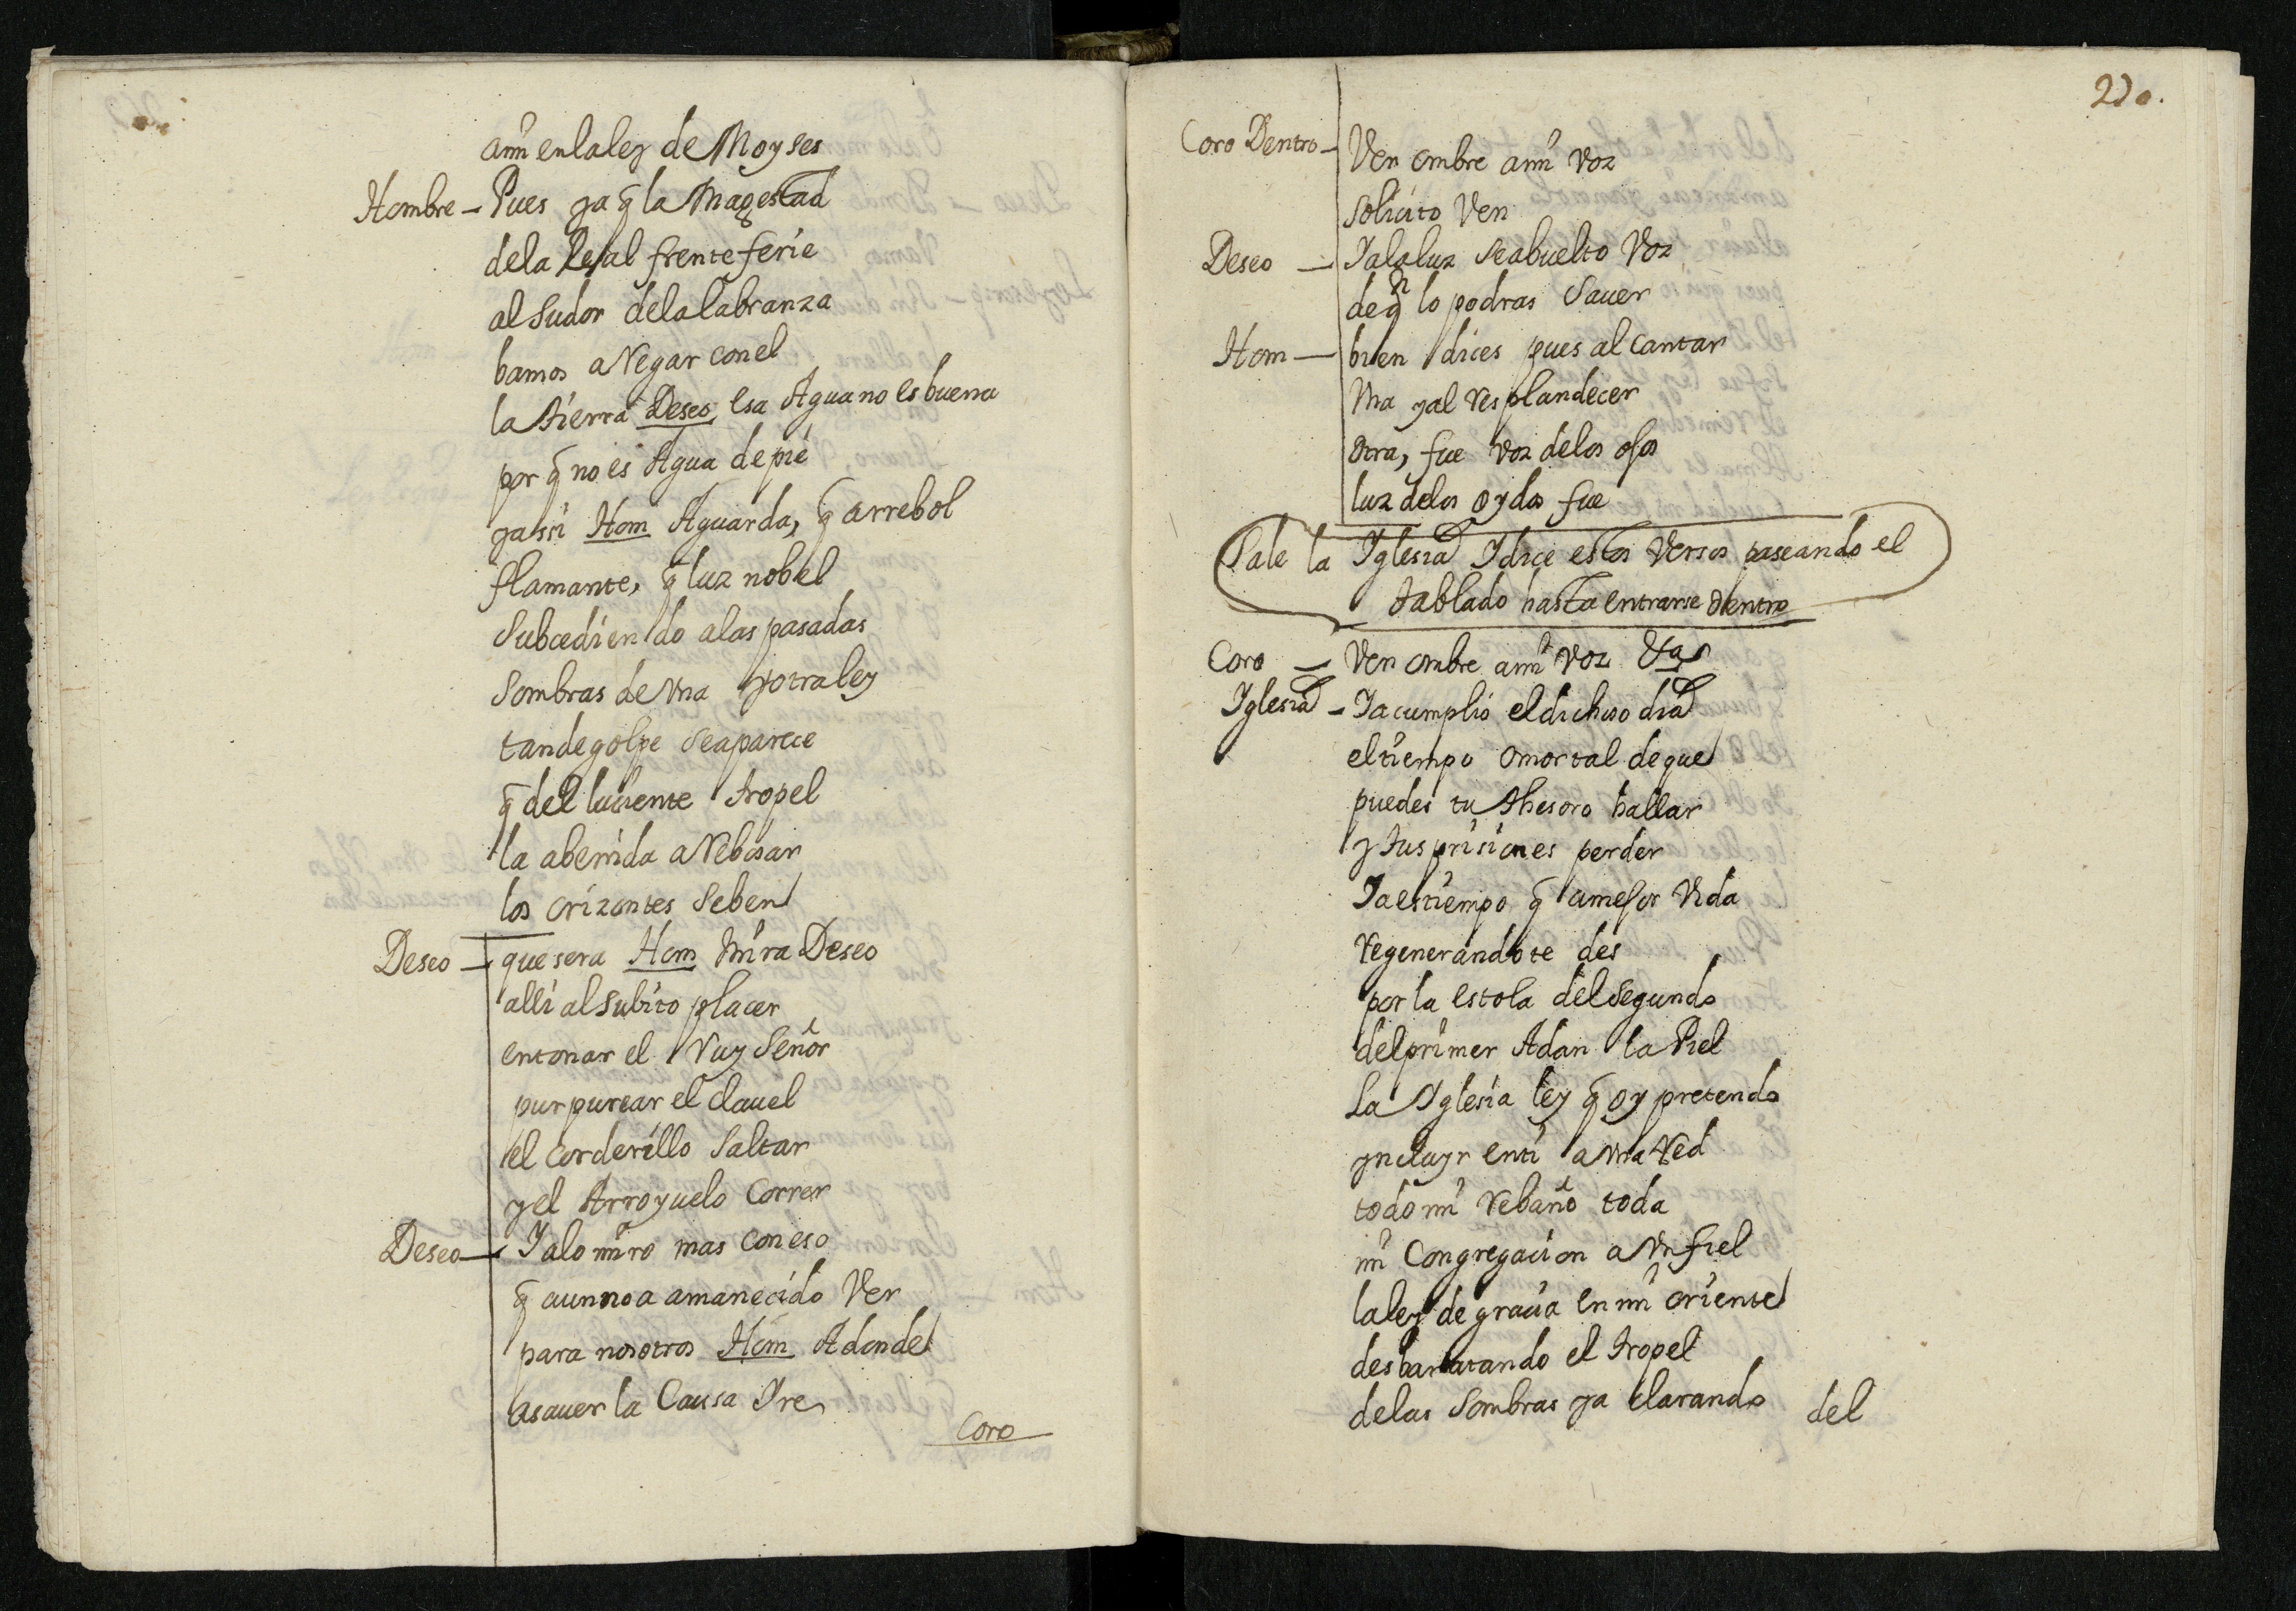 aun enlaley de Moyses
Hombre - Pues ya q̃ la Magestad
dela Real frente ferie
al Sudor delalabranza
bamos a Regar con el
la tierra Deseo esa Agua no es buena
por q̃ no es Agua de pie
yassi Hom Aguarda, q̃ arrebol
flamante, q̃ luz nobel
Subcediendo alas pasadas
Sombras de vna yotraley
tandegolpe seaparece
q̃ del luciente tropel
la abenida a Rebosar
los orizontes se ben
Deseo - que sera Hom Mira Deseo
alli al subito placer
entonar el Ruy Señor
purpurear el clauel
el corderillo Saltar
y el Arroyuelo Correr
Deseo - Yalo miro mas con eso
q̃ aun no a amanecido Ver
para nosotros Hom Adonde
asauer la Causa Yre
Coro
220.
Coro Dentro - Ven ombre a mi voz
Solicito Ven
Deseo - Yalaluz seabuelto Voz
deqⁿ lo podras Sauer
Hom - bien dices pues al cantar
Vna yal resplandecer
otra, fue voz delos ojos
luz delos oydos fue
Sale la Iglesia Ydice estos Versos paseando el
tablado hasta entrarse dentro
Coro - Ven ombre a mi voz &a
Iglesia - Ya cumplio eldichoso dia
eltiempo o mortal de que
puedes tu thesoro hallar
y tus prisiones perder
Ya es tiempo q̃ a mejor Vida
regenerandote des
por la estola del segundo
del primer Adan la Piel
La Yglesia ley q̃ oy pretendo
yncluyr en ti a vna Red
todo mi Rebaño toda
mi Congregacion a Vn fiel
la ley de gracia en mi oriente
desbaratando el tropel
delas Sombras ya clarando
del